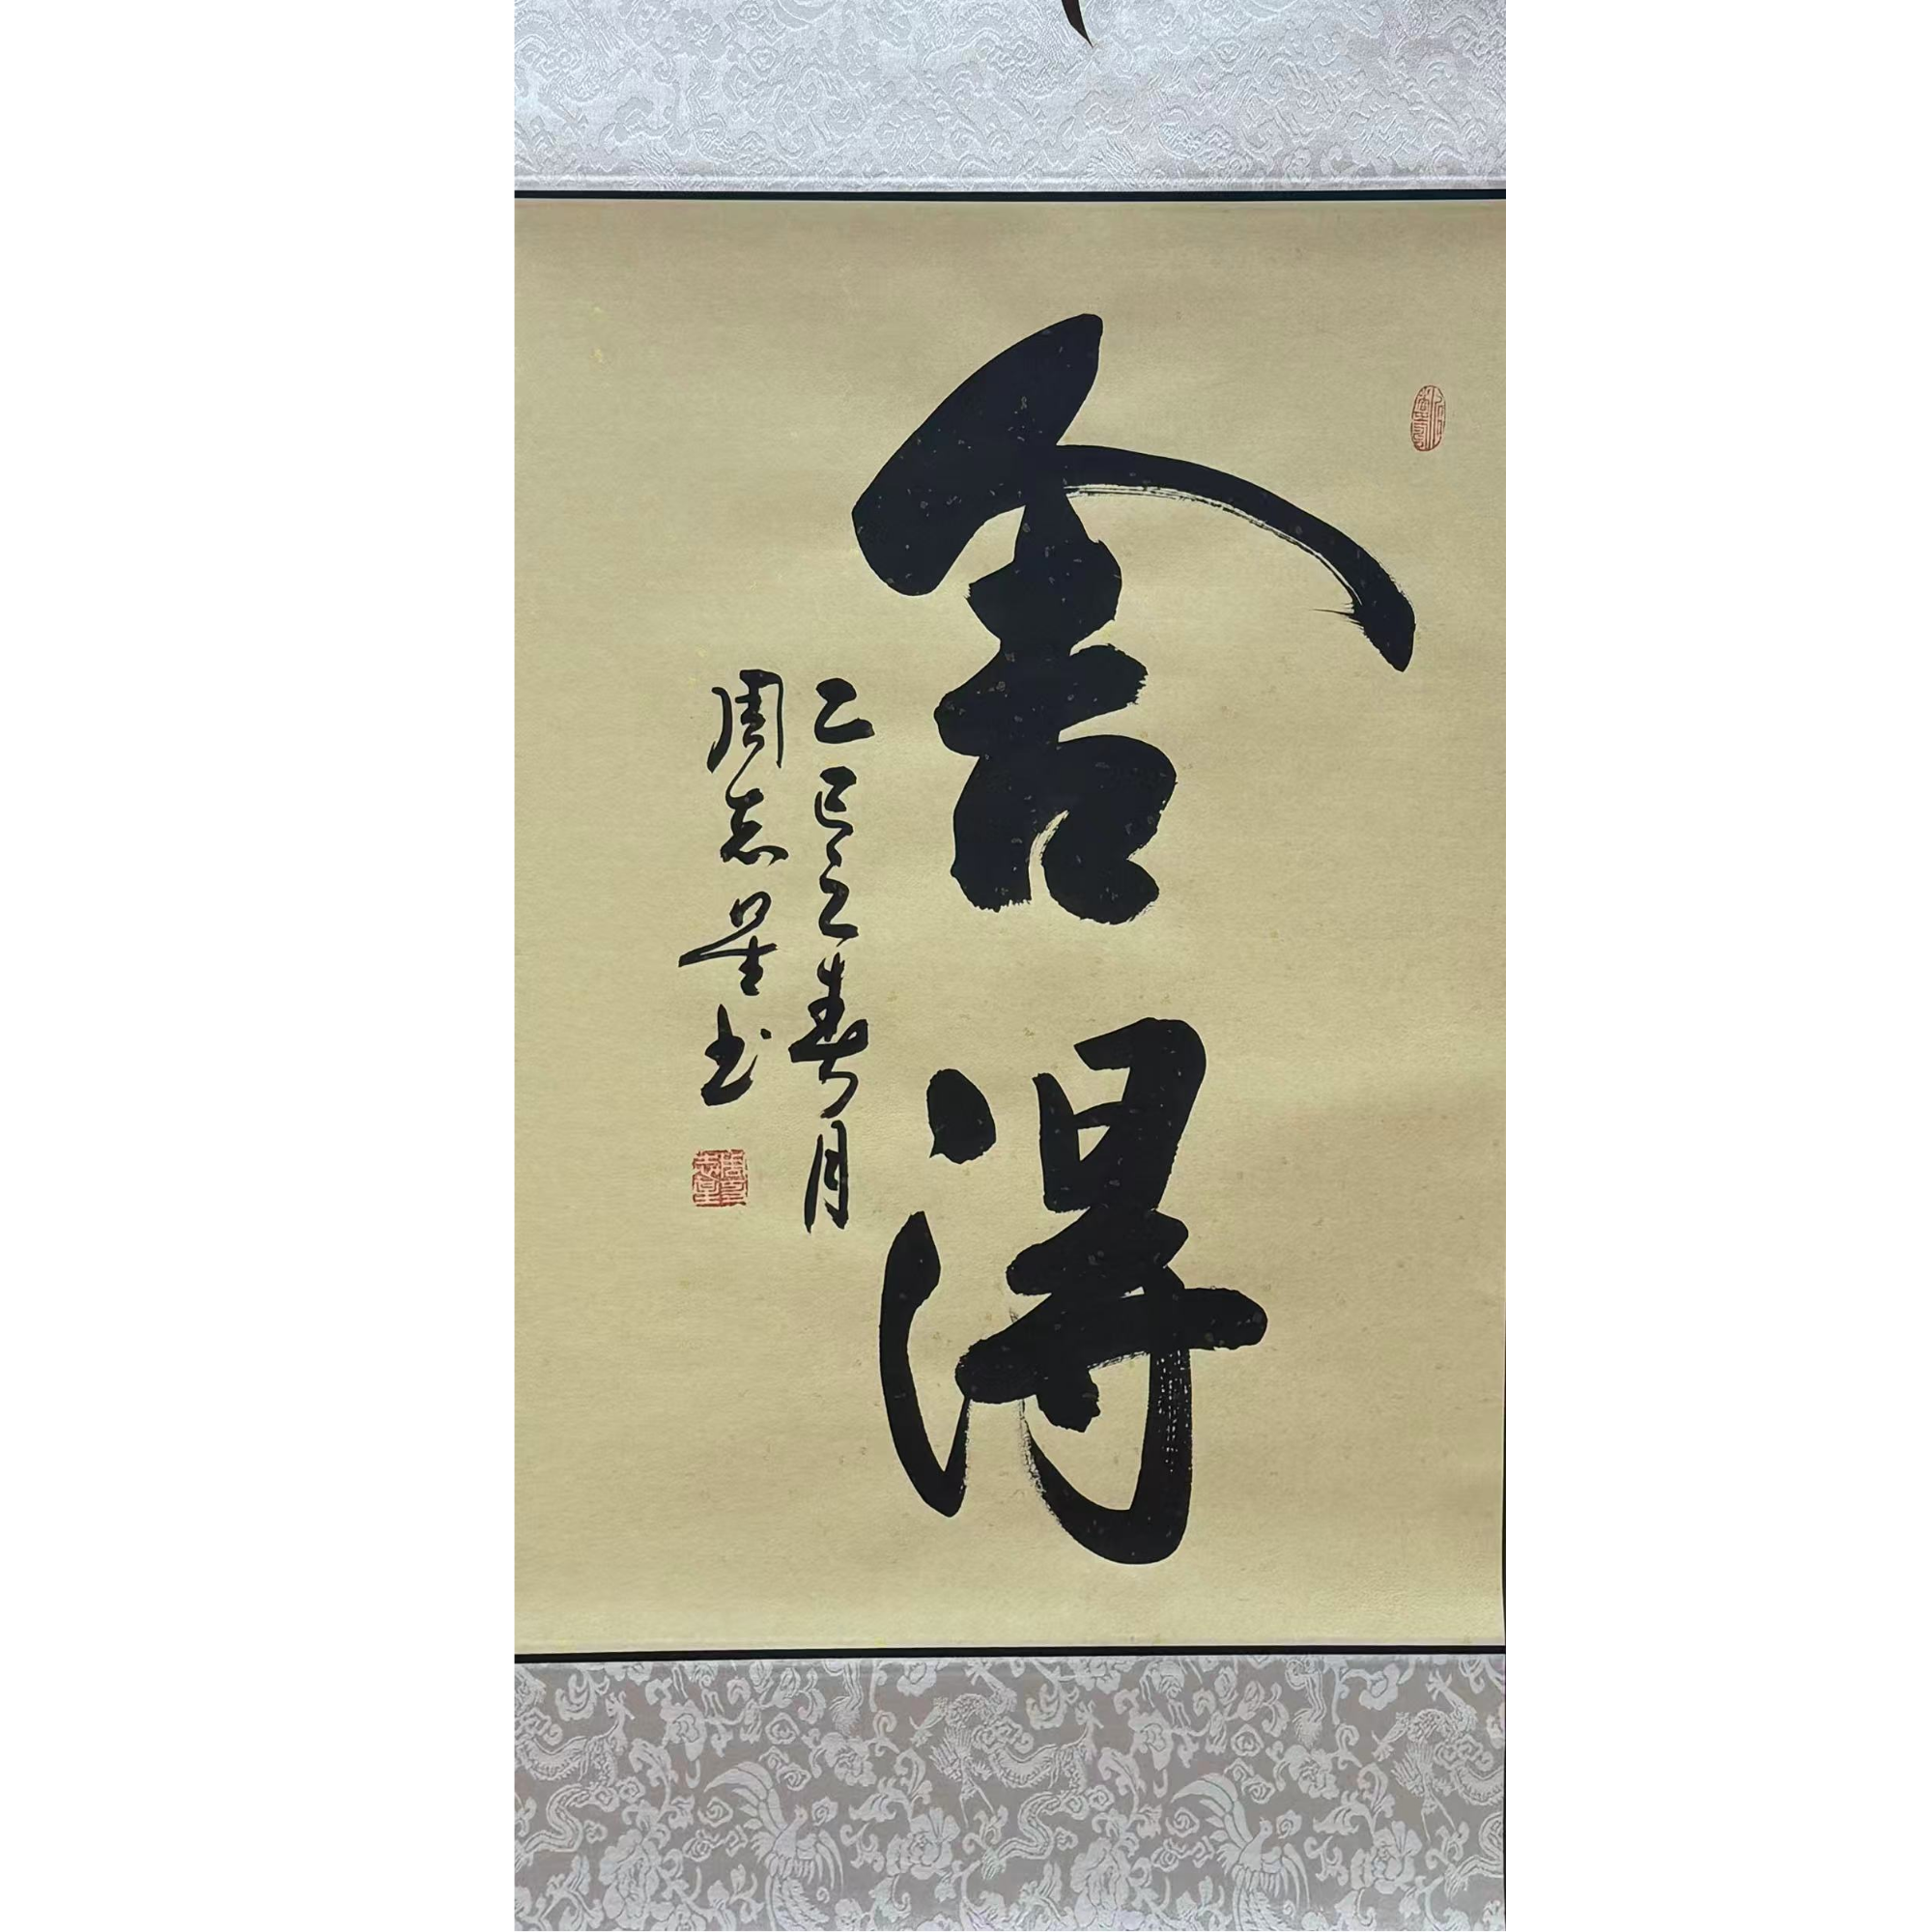 舍得
乙巳之春月
周志星书